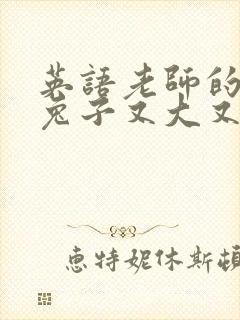 英語老師的
兔子又大又
惠特妮休斯頓